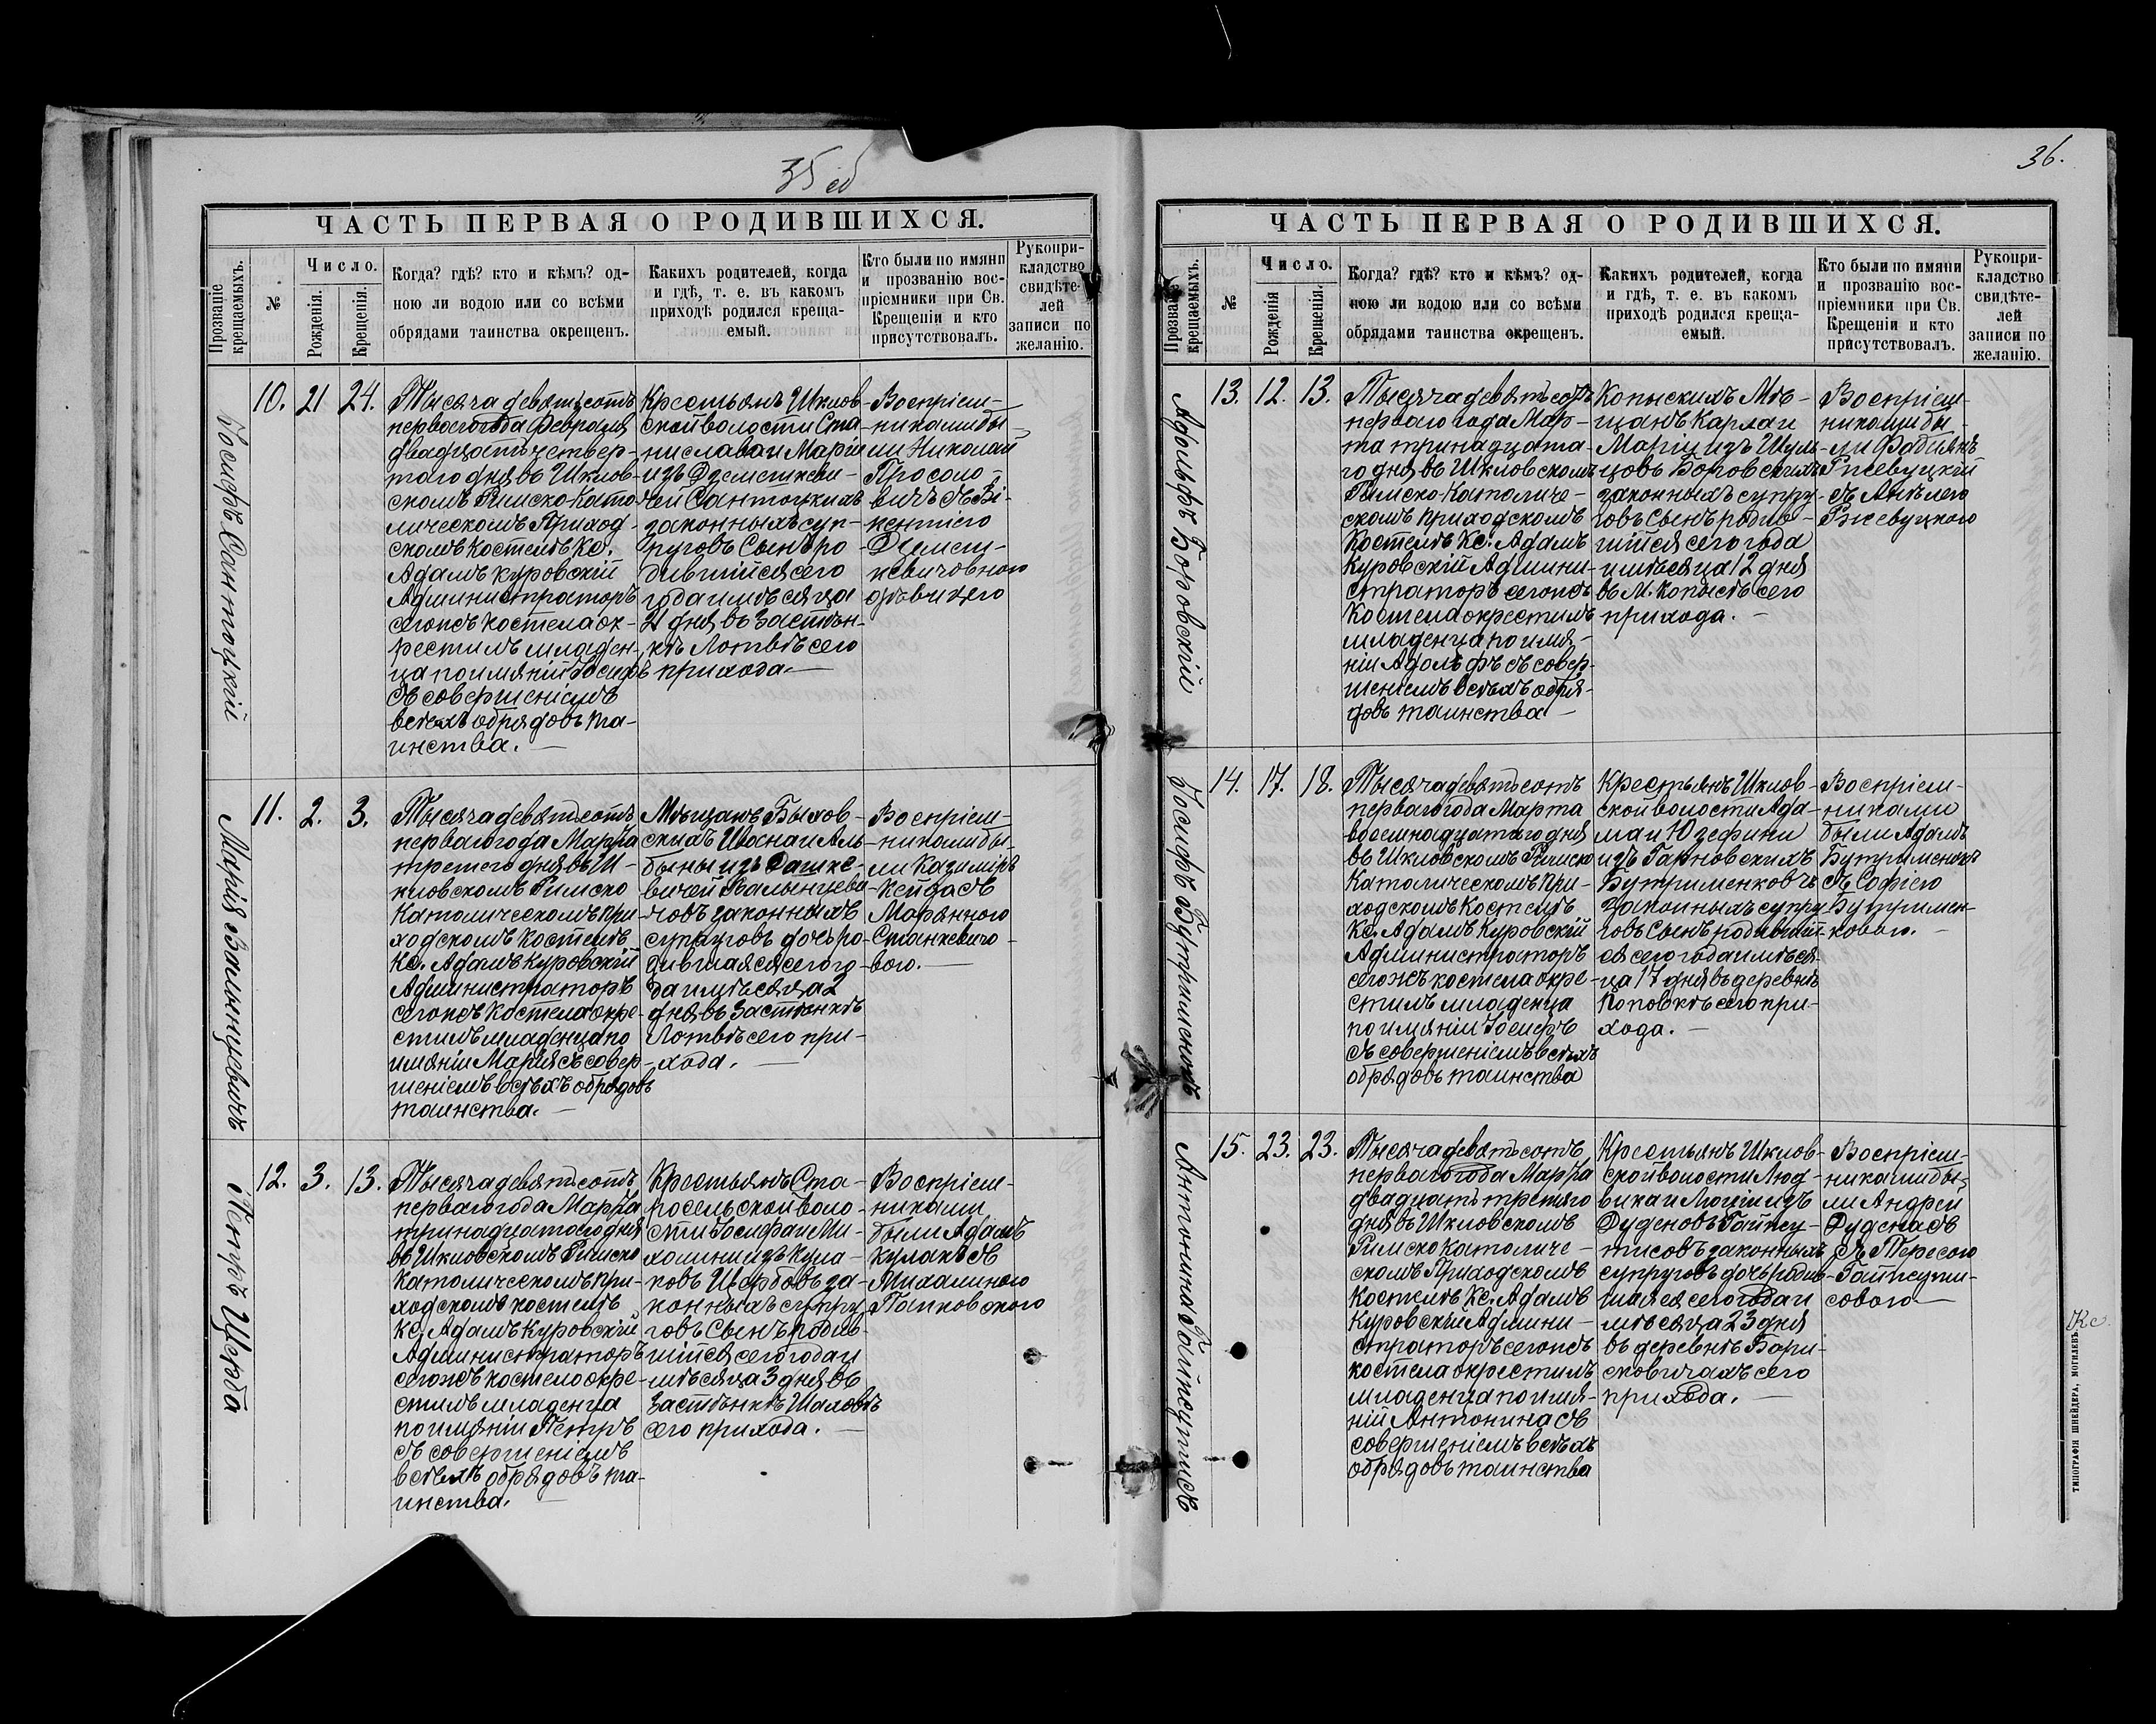 35 об
ЧАСТЬ ПЕРВАЯ О РОДИВШИХСЯ.
Прозваніе
крещаемыхъ.
№
Число.
Рожденія.
Крещенія.
Когда? гдѣ? кто и кѣмъ? од-
ною ли водою или со всѣми
обрядами таинства окрещенъ.
Какихъ родителей, когда
и гдѣ, т. е. въ какомъ
приходѣ родился креща-
емый.
Кто были по имяни
и прозванію вос-
пріемники при Св.
Крещеніи и кто
присутствовалъ.
Рукопри-
кладство
свидѣте-
лей
записи по
желанію.
Іосифъ Сантоцкій
10. 21 24.
Тысяча девятьсотъ
перваго года Февраля
двадцать четвер-
таго дня въ Шклов-
скомъ Римско Като-
лическомъ Приход-
скомъ Костелѣ Кс.
Адамъ Куровскій
Администраторъ
сегожъ костела ок-
рестилъ младен-
ца по имяніи Іосифъ
съ совершеніемъ
всѣхъ обрядовъ та-
инства.—
Крестьянъ Шклов-
ской волости Ста-
нислава и Маріи
изъ Дземешкеви-
чей Сантоцкихъ
законныхъ суп-
руговъ Сынъ ро-
дившійся сего
года и мѣсяца
21 дня въ Застѣн-
кѣ Лотвѣ сего
прихода.—
Воспріем-
никами бы-
ли Николай
Просоло-
вичъ съ Ви-
кентіею
Дземеш-
кевичовною
дѣвицею
Марія Валынцевичъ
11. 2. 3.
Тысяча девятьсотъ
перваго года Марта
третьего дня въ Ш-
кловскомъ Римско
Католическомъ При-
ходскомъ Костелѣ
Кс. Адамъ Куровскій
Администраторъ
сегожъ Костела окре-
стилъ младенца по
имяніи Марія съ совер-
шеніемъ всѣхъ обрядовъ
таинства.—
Мѣщанъ Быхов-
скихъ Ивана и Аль-
бины изъ Сашке-
вичей Валынцеви-
човъ законныхъ
супруговъ дочь ро-
дившаяся сего го-
да и мѣсяца 2
дня въ Застѣнкѣ
Лотвѣ сего при-
хода.—
Воспріем-
никами бы-
ли Казимиръ
Кейза съ
Маріанною
Станкевичо-
вою.—
Петръ Щерба
12. 3. 13.
Тысяча девятьсотъ
перваго года Марта
тринадцатого дня
въ Шкловскомъ Римско
Католическомъ При-
ходскомъ костелѣ
Кс. Адамъ Куровскій
Администраторъ
сегожъ костела окре-
стилъ младенца
по имяніи Петръ
съ совершеніемъ
всѣхъ обрядовъ та-
инства.—
Крестьянъ Ста-
росельской воло-
сти Іосифа и Ми-
халины изъ Кула-
ковъ Щербовъ за-
конныхъ супру-
говъ Сынъ родив-
шійся сего года и
мѣсяца 3 дня въ
Застѣнкѣ Шаловѣ
сего прихода.—
Воспріем-
никами
были Адамъ
Кулакъ съ
Михалиною
Пышковскою
36.
ЧАСТЬ ПЕРВАЯ О РОДИВШИХСЯ.
Прозваніе
крещаемыхъ.
№
Число.
Рожденія
Крещенія.
Когда? гдѣ? кто и кѣмъ? од-
ною ли водою или со всѣми
обрядами таинства окрещенъ.
Какихъ родителей, когда
и гдѣ, т. е. въ какомъ
приходѣ родился креща-
емый.
Кто были по имяни
и прозванію вос-
пріемники при Св.
Крещеніи и кто
присутствовалъ.
Рукопри-
кладство
свидѣте-
лей
записи по
желанію.
Адольфъ Боровскій
13. 12. 13.
Тысяча девятьсотъ
перваго года Мар-
та тринадцата-
го дня въ Шкловскомъ
Римско-Католиче-
скомъ приходскомъ
Костелѣ Кс. Адамъ
Куровскій Админи-
страторъ сегожъ
Костела окрестилъ
младенца по имя-
ніи Адольфъ съ совер-
шеніемъ всѣхъ обря-
довъ таинства—
Копыскихъ Мѣ-
щанъ Карла и
Маріи изъ Шуль-
цовъ Боровскихъ
законныхъ супру-
говъ Сынъ родив-
шійся сего года
и мѣсяца 12 дня
въ М. Копысѣ сего
прихода.—
Воспріем-
никами бы-
ли Фабіянъ
Ржевуцкій
съ Анѣлею
Ржевуцкою
Іосифъ Бутрименокъ
14. 17. 18.
Тысяча девятьсотъ
перваго года Марта
восемнадцатаго дня
въ Шкловскомъ Римско
Католическомъ При-
ходскомъ Костелѣ
Кс. Адамъ Куровскій
Администраторъ
сегожъ костела окре-
стилъ младенца
по имяніи Іосифъ
съ совершеніемъ всѣхъ
обрядовъ таинства
Крестьянъ Шклов-
ской волости Ада-
ма и Юзефины
изъ Гарновскихъ
Бутрименковъ
законныхъ супру-
говъ Сынъ родившій-
ся сего года и мѣся-
ца 17 дня въ деревнѣ
Поповкѣ сего при-
хода.—
Воспріем-
никами
были Адамъ
Бутрименокъ
съ Софіею
Бутримен-
ковою.—
Антонина Гайпсутисъ
15. 23. 23.
Тысяча девятьсотъ
перваго года Марта
двадцать третяго
дня въ Шкловскомъ
Римско Католиче-
скомъ Приходскомъ
Костелѣ Кс. Адамъ
Куровскій Админи-
страторъ сегожъ
костела окрестилъ
младенца по имя-
ніи Антонина съ
совершеніемъ всѣхъ
обрядовъ таинства
Крестьянъ Шклов-
ской волости Люд-
вика и Люціи изъ
Дуденовъ Гайпсу-
тисовъ законныхъ
супруговъ дочь родив-
шаяся сего года и
мѣсяца 23 дня
въ деревнѣ Бари-
сковичахъ сего
прихода.—
Воспріем-
никами бы-
ли Андрей
Дудена съ
съ Тересою
Гайпсути-
совою—
Кс.
ТИПОГРАФІЯ ШНЕЙДЕРА, МОГИЛЕВЪ.